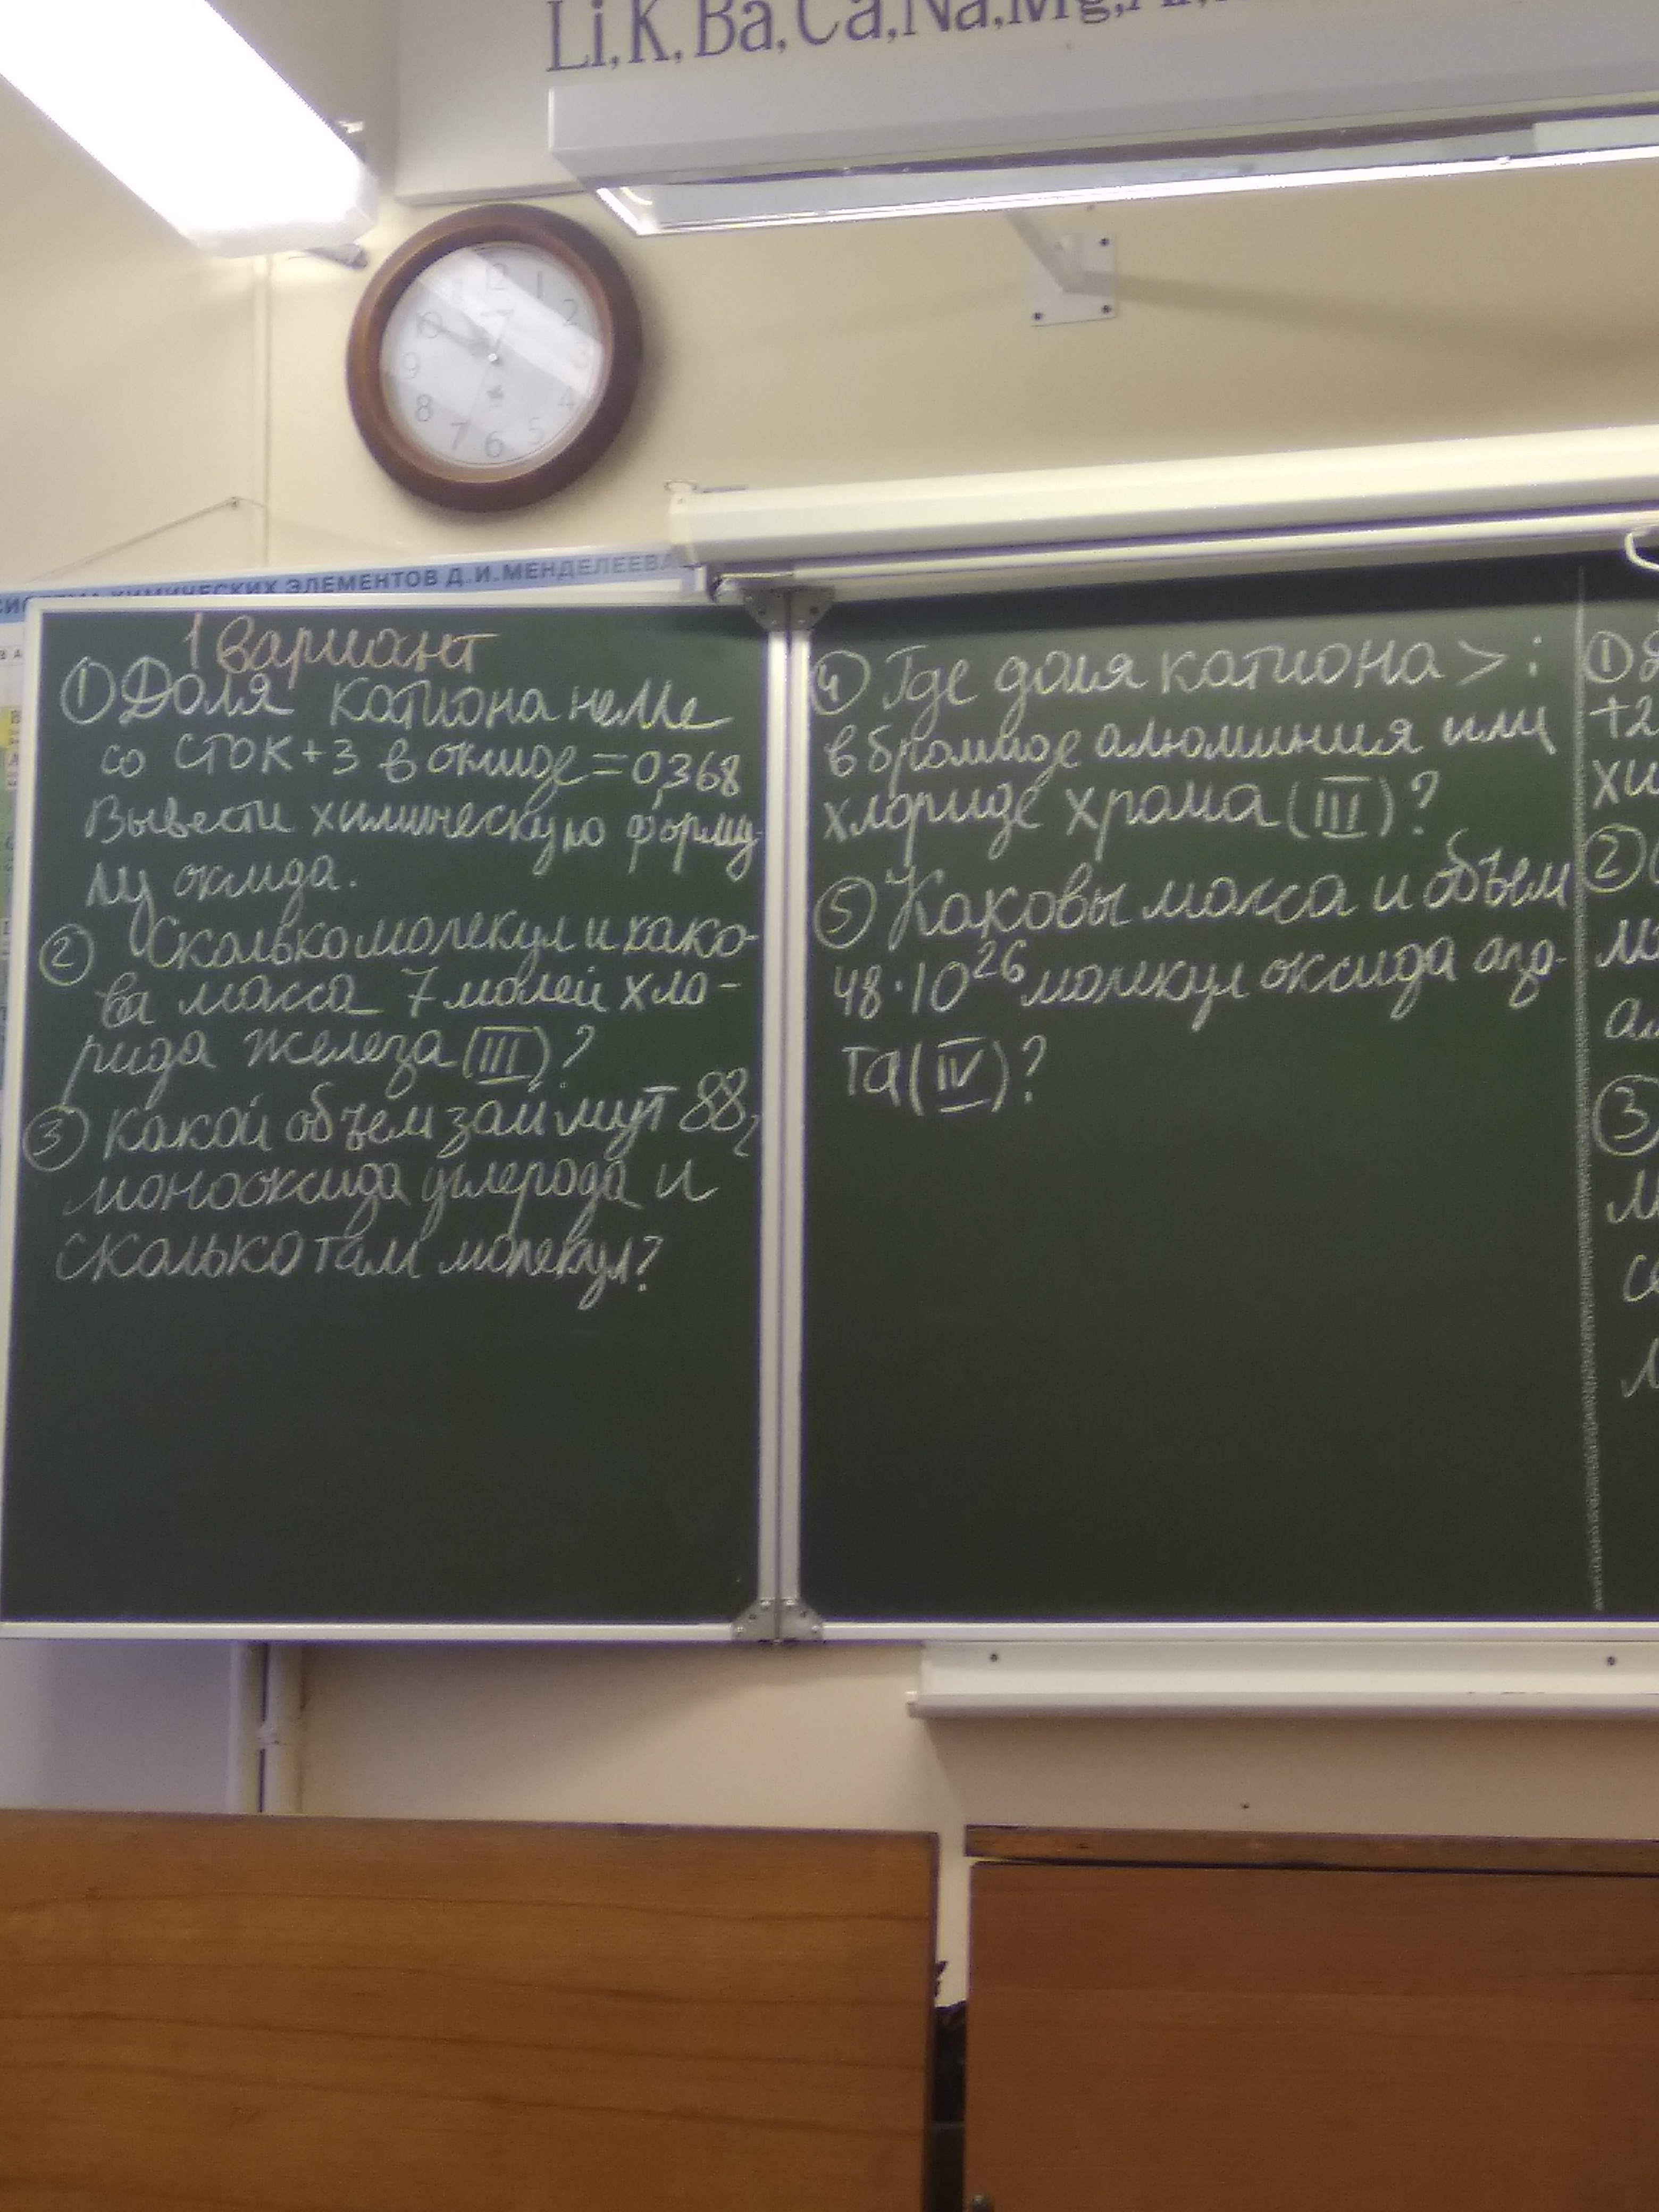 Li, K, Ba, Ca, Na, Mg, Al,
12 1 2 3 4 5 6 7 8 9 10 11
ХИМИЧЕСКИХ ЭЛЕМЕНТОВ Д.И.МЕНДЕЛЕЕВА
1 вариант
① Доля катиона неМе
со СТОК+3 в оксиде=0,368
Вывести химическую форму-
лу оксида.
② Сколько молекул и како-
ва масса 7 молей хло-
рида железа (III)?
③ Какой объем займут 88г
монооксида углерода и
сколько там молекул?
④ Где доля катиона > :
в бромиде алюминия или
хлориде хрома (III)?
⑤ Каковы масса и объем
48·10²⁶ молекул оксида азо-
та (IV)?
①
+2
хи
②
③